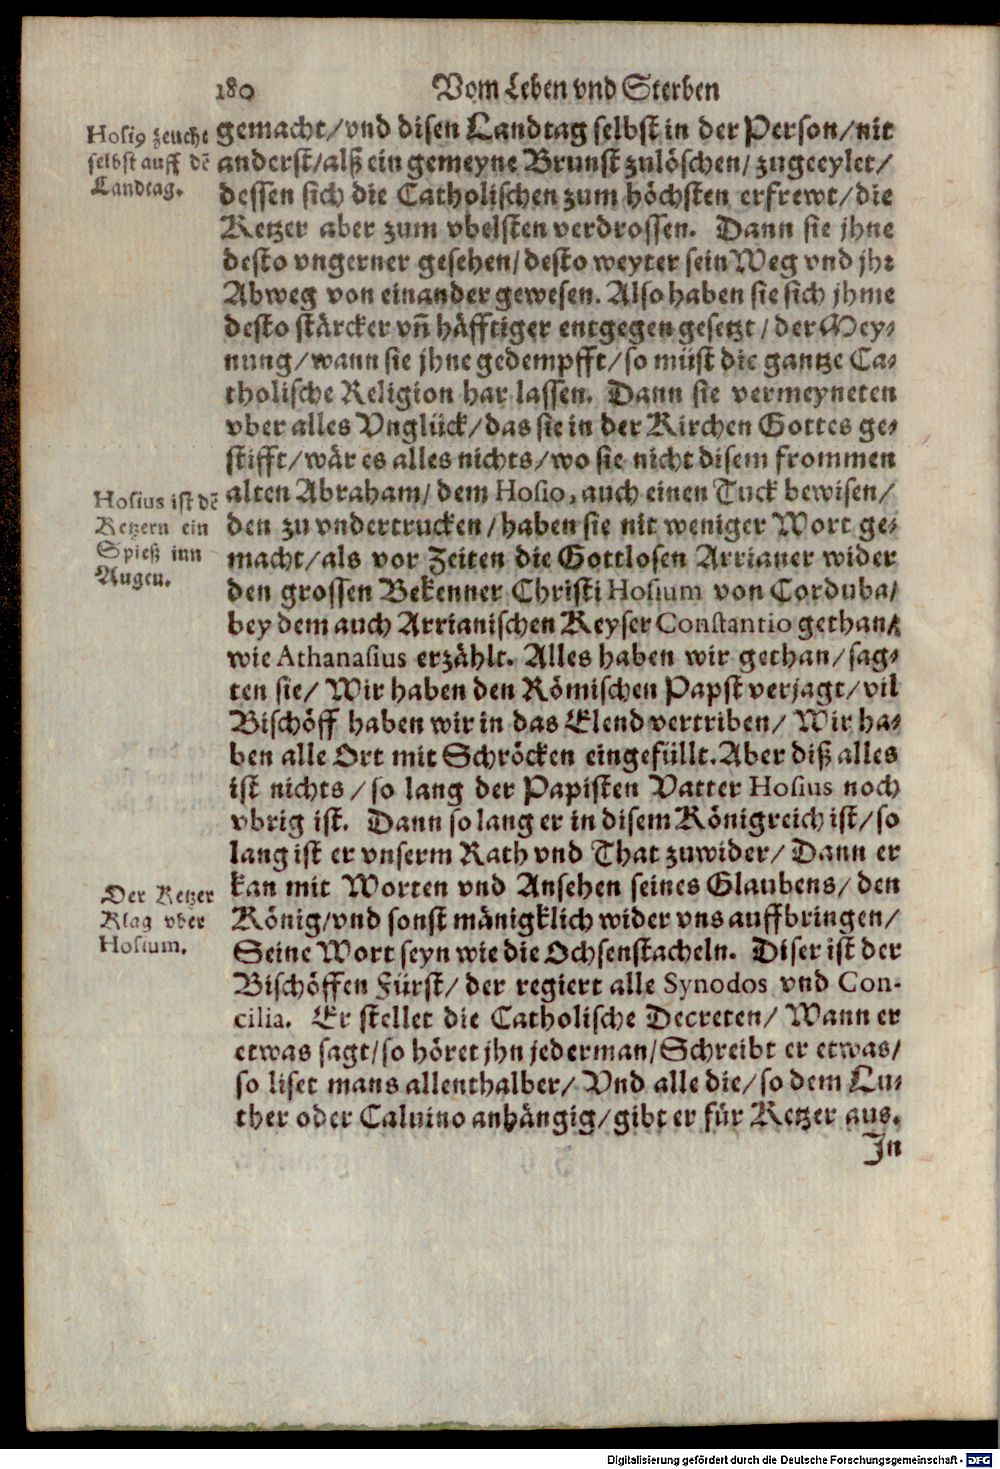 180 Vom Leben vnd Sterben
Hosiꝰ zeucht
selbst auff dē
Landtag.
gemacht/vnd disen Landtag selbst in der Person/nit
anderst/alß ein gemeyne Brunst zulöschen/zugeeylet/
dessen sich die Catholischen zum höchsten erfrewt/die
Ketzer aber zum vbelsten verdrossen. Dann sie jhne
desto vngerner gesehen/desto weyter sein Weg vnd jhr
Abweg von einander gewesen. Also haben sie sich jhme
desto stärcker vñ häfftiger entgegen gesetzt/der Mey-
nung/wann sie jhne gedempfft/so müst die gantze Ca-
tholische Religion har lassen. Dann sie vermeyneten
vber alles Vnglück/das sie in der Kirchen Gottes ge-
stifft/wär es alles nichts/wo sie nicht disem frommen
Hosius ist dē
Ketzern ein
Spieß inn
Augen.
alten Abraham/dem Hosio, auch einen Tuck bewisen/
den zu vndertrucken/haben sie nit weniger Wort ge-
macht/als vor Zeiten die Gottlosen Arrianer wider
den grossen Bekenner Christi Hosium von Corduba/
bey dem auch Arrianischen Keyser Constantio gethan/
wie Athanasius erzählt. Alles haben wir gethan/sag-
ten sie/Wir haben den Römischen Papst verjagt/vil
Bischöff haben wir in das Elend vertriben/Wir ha-
ben alle Ort mit Schröcken eingefüllt. Aber diß alles
ist nichts/so lang der Papisten Vatter Hosius noch
vbrig ist. Dann so lang er in disem Königreich ist/so
lang ist er vnserm Rath vnd That zuwider/Dann er
Der Ketzer
Klag vber
Hosium.
kan mit Worten vnd Ansehen seines Glaubens/den
König/vnd sonst mänigklich wider vns auffbringen/
Seine Wort seyn wie die Ochsenstacheln. Diser ist der
Bischöffen Fürst/der regiert alle Synodos vnd Con-
cilia. Er stellet die Catholische Decreten/Wann er
etwas sagt/so höret jhn jederman/Schreibt er etwas/
so liset mans allenthalber/Vnd alle die/so dem Lu-
ther oder Caluino anhängig/gibt er für Ketzer aus.
In
Digitalisierung gefördert durch die Deutsche Forschungsgemeinschaft - DFG